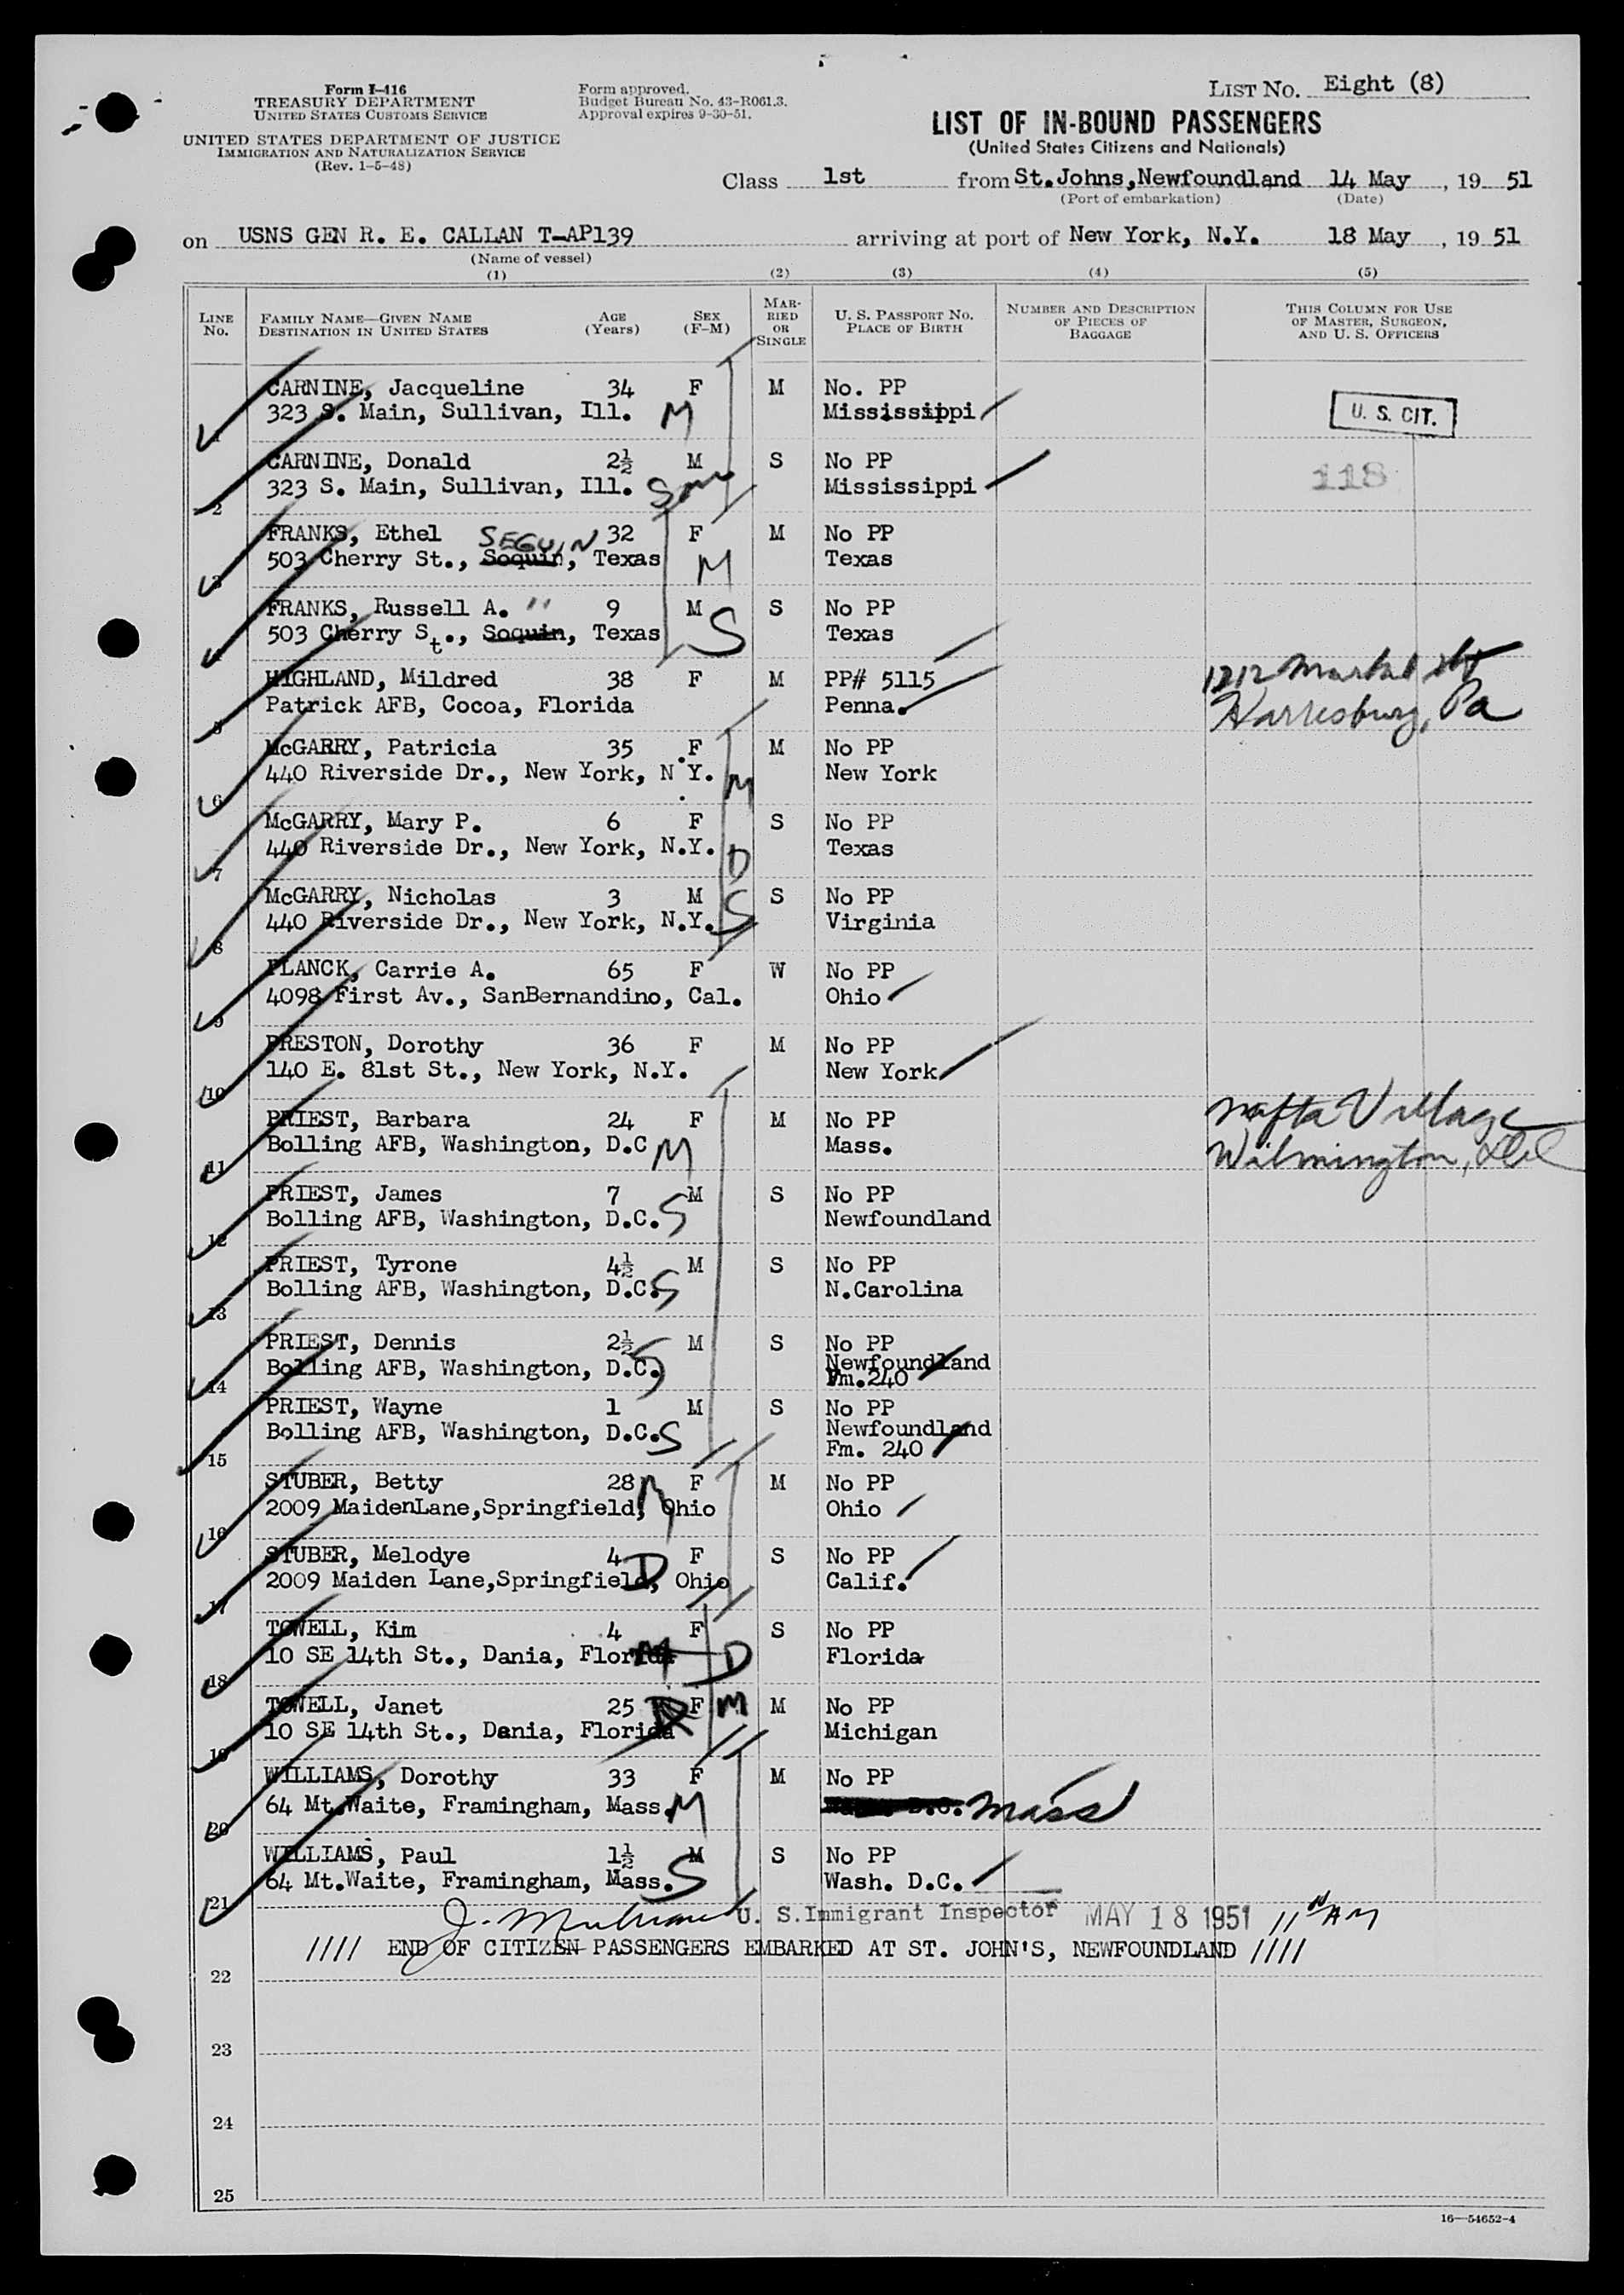 Form I-416
TREASURY DEPARTMENT
UNITED STATES CUSTOMS SERVICE
UNITED STATES DEPARTMENT OF JUSTICE
IMMIGRATION AND NATURALIZATION SERVICE
(Rev. 1-5-48)
Form approved.
Budget Bureau No. 43-R061.3.
Approval expires 9-30-51.
LIST NO. Eight (8)
LIST OF IN-BOUND PASSENGERS
(United States Citizens and Nationals)
Class 1st from St.Johns,Newfoundland 14 May, 19 51
(Port of embarkation) (Date)
on USNS GEN R. E. CALLAN T-AP139 arriving at port of New York, N.Y. 18 May, 19 51
(Name of vessel)
(1) (2) (3) (4) (5)
LINE No. FAMILY NAME—GIVEN NAME DESTINATION IN UNITED STATES AGE (Years) SEX (F-M) MARRIED OR SINGLE U. S. PASSPORT NO. PLACE OF BIRTH NUMBER AND DESCRIPTION OF PIECES OF BAGGAGE THIS COLUMN FOR USE OF MASTER, SURGEON, AND U. S. OFFICERS
CARNINE, Jacqueline 34 F M No. PP
1 323 S. Main, Sullivan, Ill. M Mississippi U. S. CIT.
CARNINE, Donald 2½ M S No PP
2 323 S. Main, Sullivan, Ill. Son Mississippi 118
FRANKS, Ethel SEGUIN 32 F M No PP
3 503 Cherry St., Soquin, Texas M Texas
FRANKS, Russell A. " 9 M S No PP
4 503 Cherry St., Soquin, Texas S Texas
HIGHLAND, Mildred 38 F M PP# 5115 1212 Market St
5 Patrick AFB, Cocoa, Florida Penna. Harrisburg, Pa
McGARRY, Patricia 35 F M No PP
6 440 Riverside Dr., New York, N.Y. M New York
McGARRY, Mary P. 6 F S No PP
7 440 Riverside Dr., New York, N.Y. D Texas
McGARRY, Nicholas 3 M S No PP
8 440 Riverside Dr., New York, N.Y. S Virginia
PLANCK, Carrie A. 65 F W No PP
9 4098 First Av., SanBernandino, Cal. Ohio
PRESTON, Dorothy 36 F M No PP
10 140 E. 81st St., New York, N.Y. New York
PRIEST, Barbara 24 F M No PP Village
11 Bolling AFB, Washington, D.C M Mass. Wilmington, Del
PRIEST, James 7 M S No PP
12 Bolling AFB, Washington, D.C. S Newfoundland
PRIEST, Tyrone 4½ M S No PP
13 Bolling AFB, Washington, D.C. S N.Carolina
PRIEST, Dennis 2½ M S No PP
14 Bolling AFB, Washington, D.C. S Newfoundland
Fm.240
PRIEST, Wayne 1 M S No PP
15 Bolling AFB, Washington, D.C. S Newfoundland
Fm. 240
STUBER, Betty 28 M F M No PP
16 2009 MaidenLane,Springfield, Ohio Ohio
STUBER, Melodye 4 D F S No PP
17 2009 Maiden Lane,Springfield, Ohio Calif.
TOWELL, Kim 4 F S No PP
18 10 SE 14th St., Dania, Florida D Florida
TOWELL, Janet 25 F M M No PP
19 10 SE 14th St., Dania, Florida Michigan
WILLIAMS, Dorothy 33 F M No PP
20 64 Mt.Waite, Framingham, Mass. M D.C. Mass
WILLIAMS, Paul 1½ M S No PP
21 64 Mt.Waite, Framingham, Mass. S Wash. D.C.
U. S.Immigrant Inspector MAY 18 1951 11 AM
//// END OF CITIZEN PASSENGERS EMBARKED AT ST. JOHN'S, NEWFOUNDLAND ////
22
23
24
25
16—54652-4